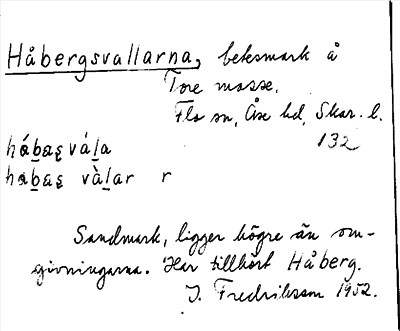 Håbergsvallarna, betesmark å
Tore mosse,
Flo sn, Åse hd, Skar. l.
132
hábæʂ vála
habæʂ vàlar r
Sandmark, ligger högre än om-
givningarna. Har tillhört Håberg.
J. Fredriksson 1952.